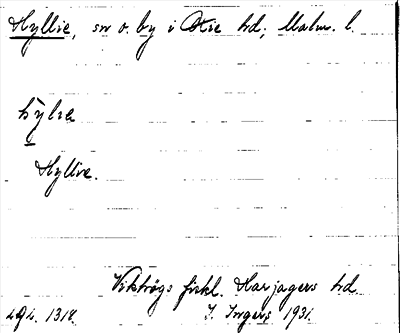 Hyllie, sn o. by i Oxie hd, Malm. l.
hylie
Hyllie.
Vikhögs fiskl. Harjagers hd
I. Ingers 1931.